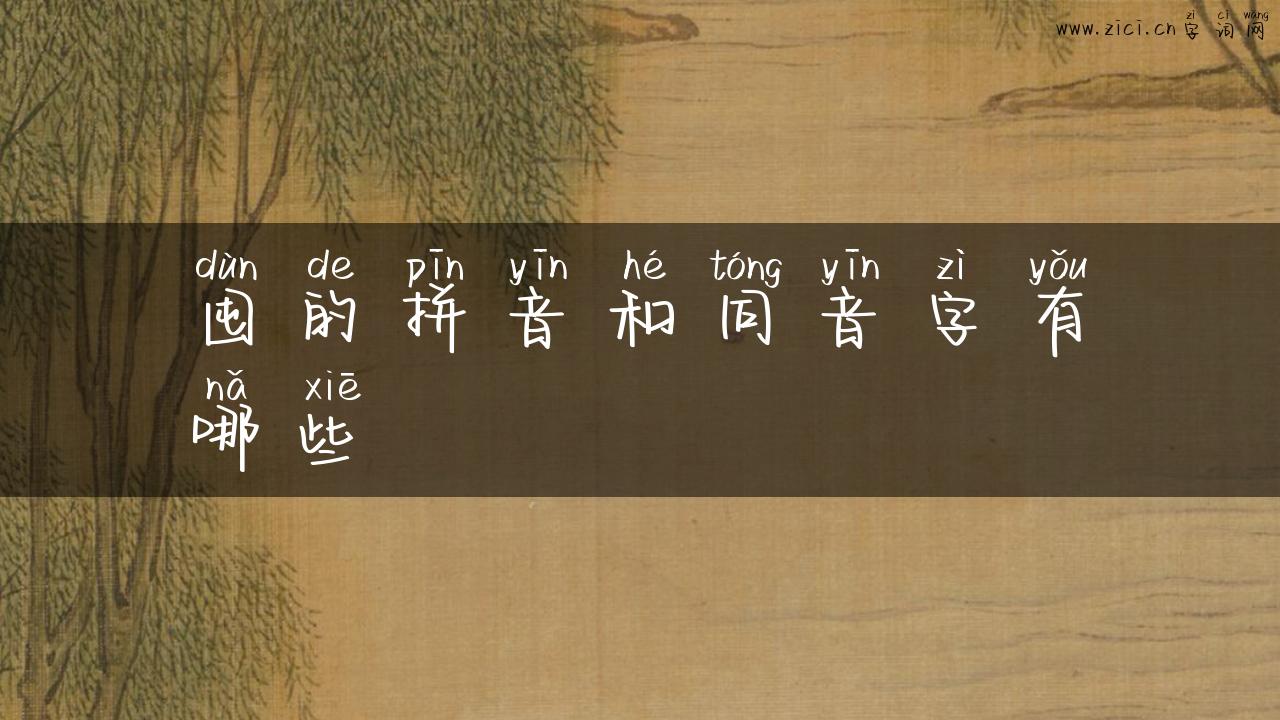 zì cí wǎng
www.zici.cn 字 词 网
dùn de pīn yīn hé tóng yīn zì yǒu
囤 的 拼 音 和 同 音 字 有
nǎ xiē
哪 些